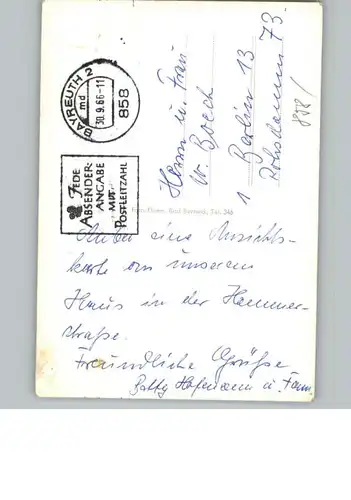 BAYREUTH 2
md
30.9.66-11
858
JEDE
ABSENDER-
ANGABE
MIT
POSTLEITZAHL
Herrn u. Frau
W. Boech
1 Berlin 13
73
858/
Anbei eine Ansichts-
karte von unserem
Haus in der Hammer-
straße.
Freundliche Grüße
Betty Hofmann u. Fam.